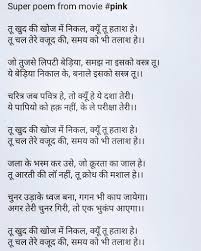 Super poem from movie #pink
तू खुद की खोज में निकल, तू क्यूँ हताश है।
तू चल तेरे वजूद की, समय को भी तलाश है।।
जो तुजसे लिपटी बेड़िया, समझ ना इसको वस्त्र तू।
ये बेड़िया निकाल के, बनाले इसको सस्त्र तू।।
चरित्र जब पवित्र हे, तो क्यूँ हे ये दशा तेरी।
ये पापियो को हक़ नहीं, के ले परीक्षा तेरी।।
तू खुद की खोज में निकल, तू क्यूँ हताश हे।
तू चल तेरे वजूद की, समय को भी तलाश हे।।
जला के भस्म कर उसे, जो क्रूरता का जाल हे।
तू आरती की लॉं नहीं, तू क्रोध की मशाल हे।।
चुनर उड़ाके ध्वज बना, गगन भी काप जायेगा।
अगर तेरी चुनर गिरी, तो एक भुकंप आएगा।।
तू खुद की खोज में निकल, तू क्यूँ हताश हे।
तू चल तेरे वजूद की, समय को भी तलाश हे।।